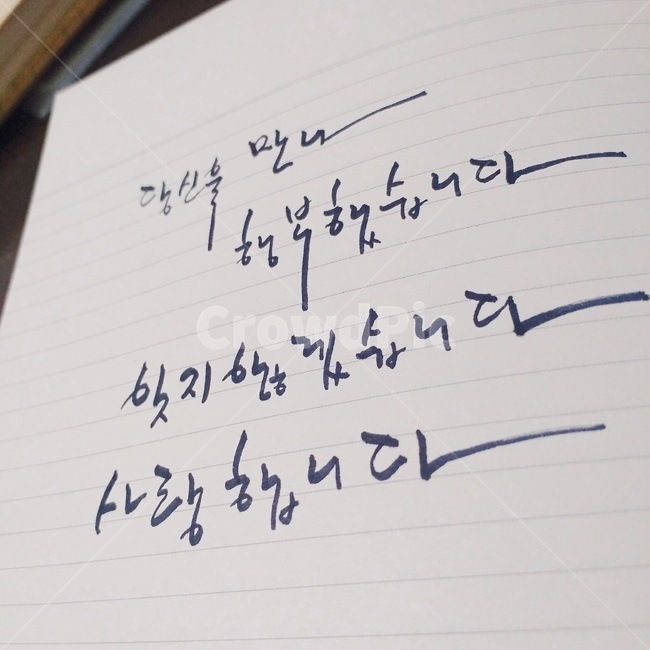 당신을 만나
행복했습니다
잊지 않겠습니다
사랑합니다
CrowdPic